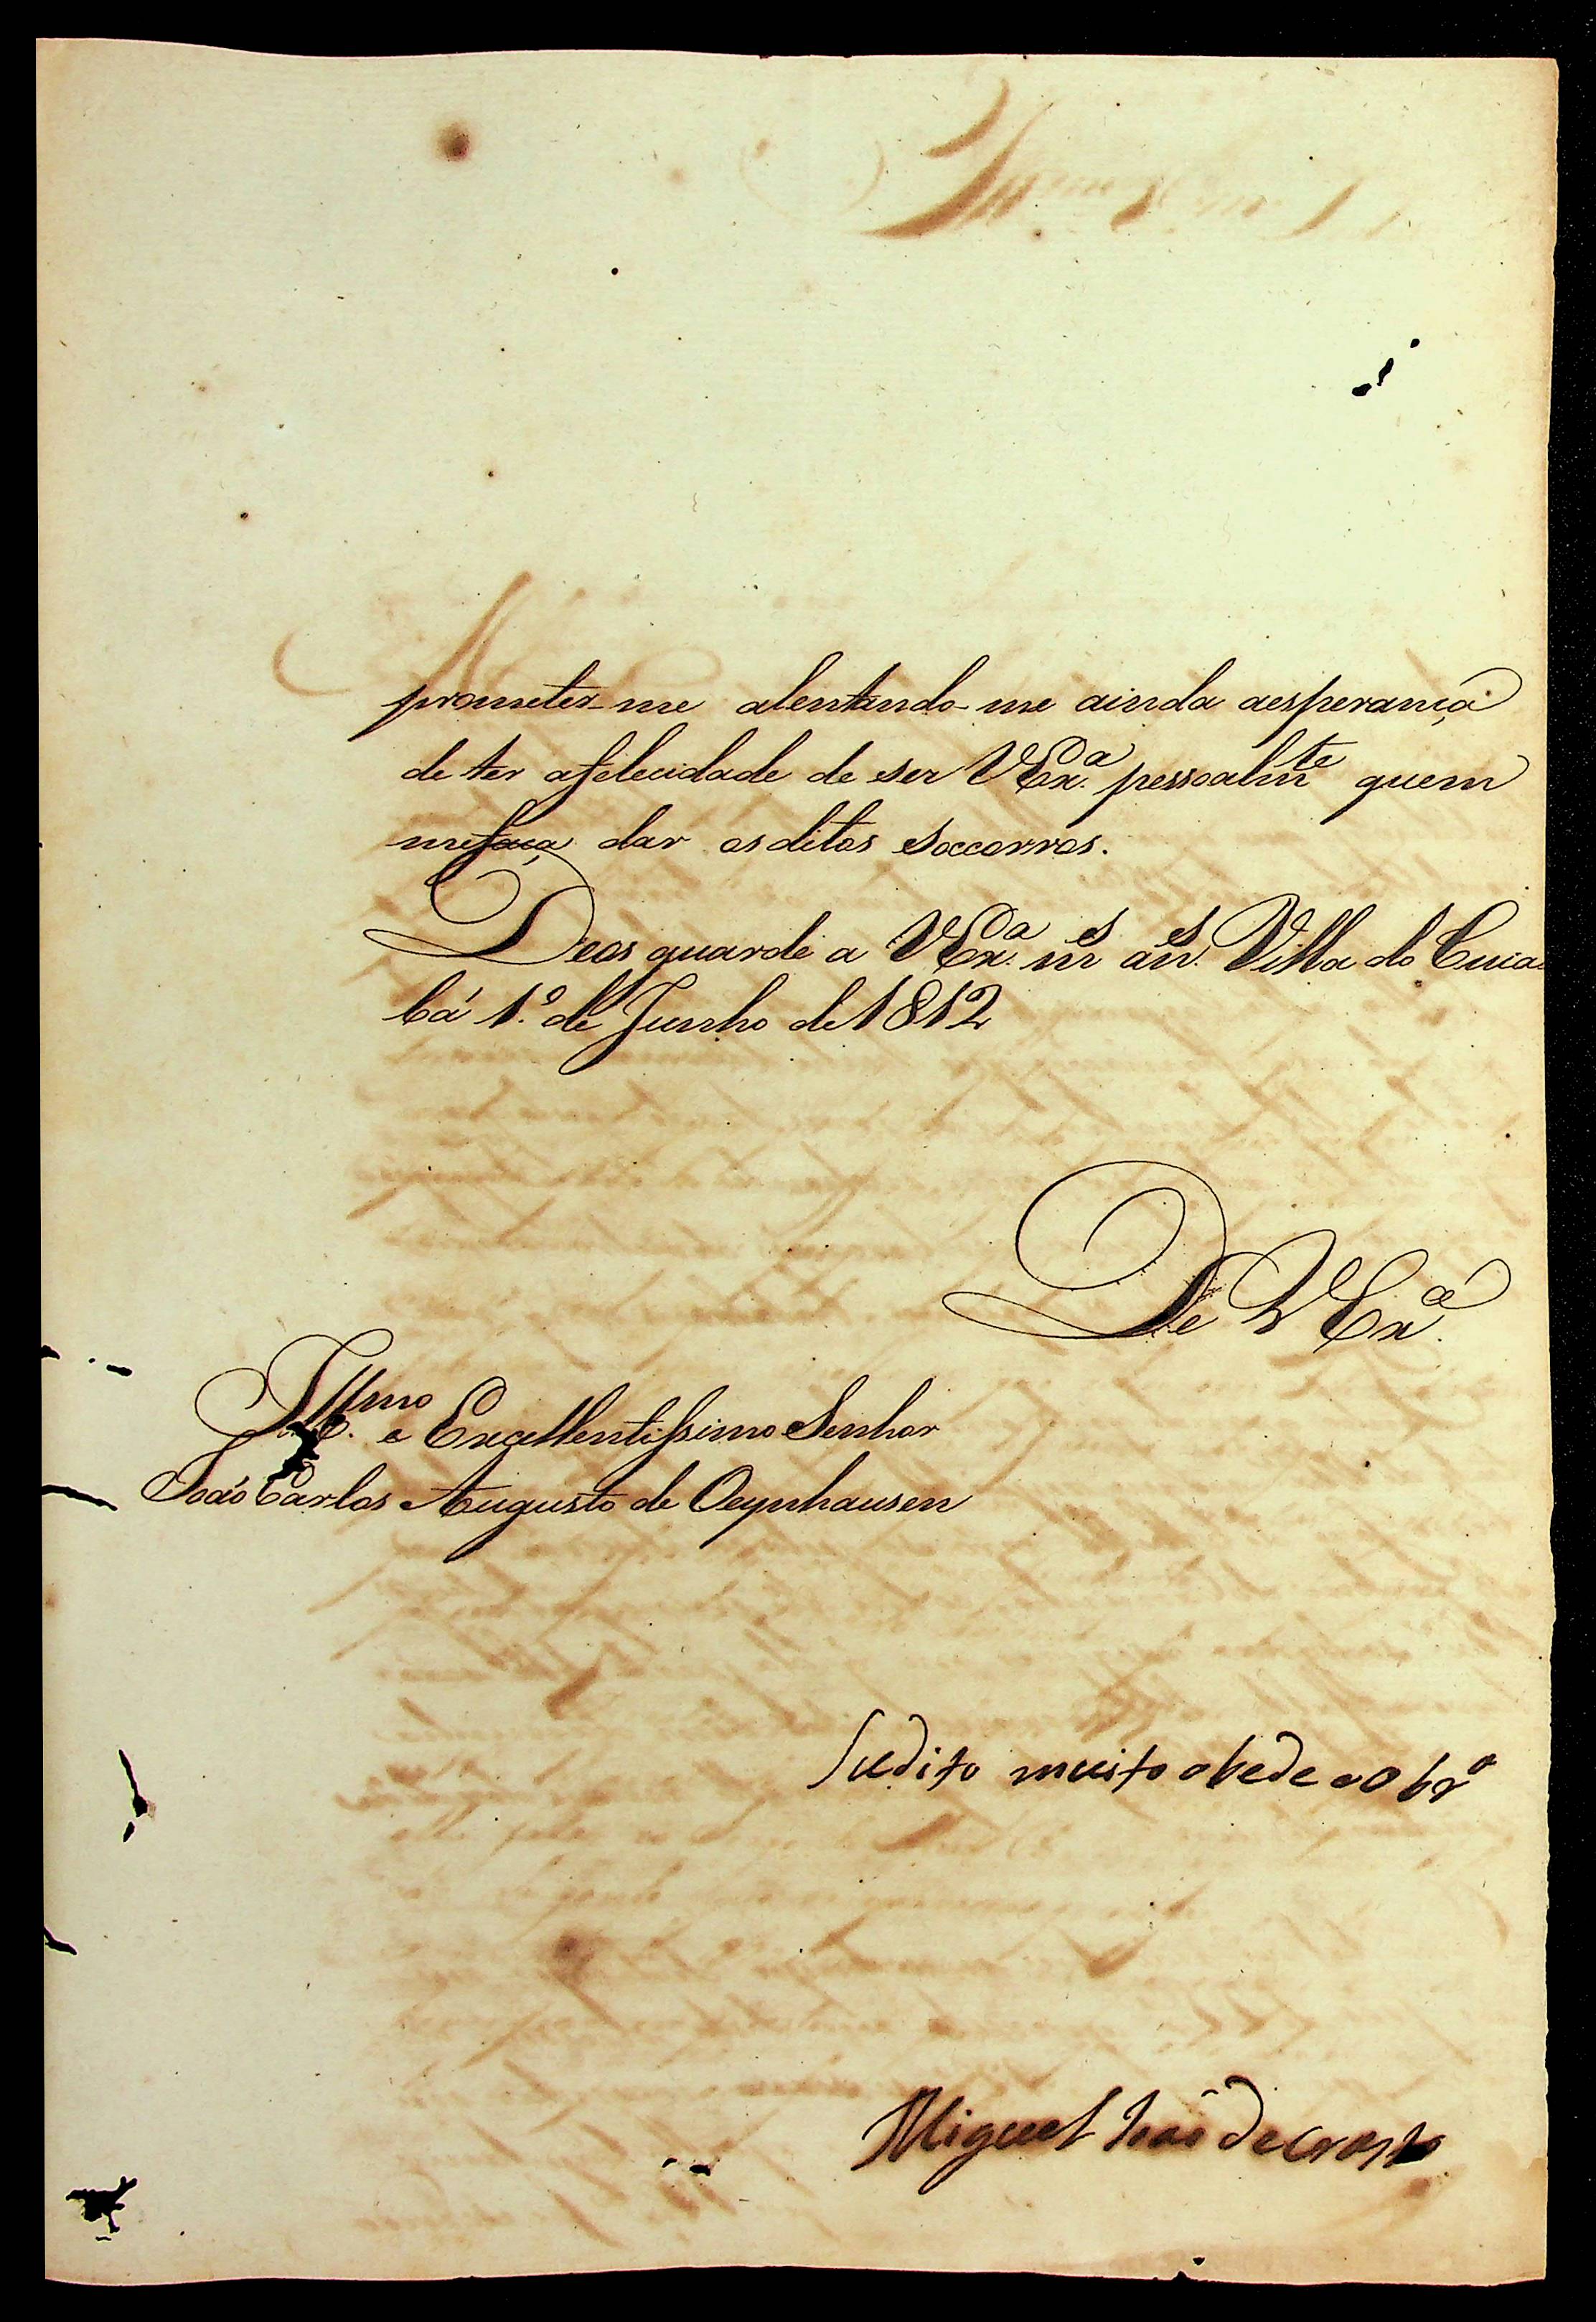 prometer-me alentando-me ainda aesperança
de ter afelecidade de ser VExª pessoalmte quem
mefaça dar osditos soccorros.
Deos guarde a VExª ms ans. Villa do Cuia-
bá 1º de Junho de 1812
De VExª
Illmo e Excellentissimo Senhor
João Carlos Augusto de Oeynhausen
Sudito muito obede e Obrº
Miguel João de Crasto